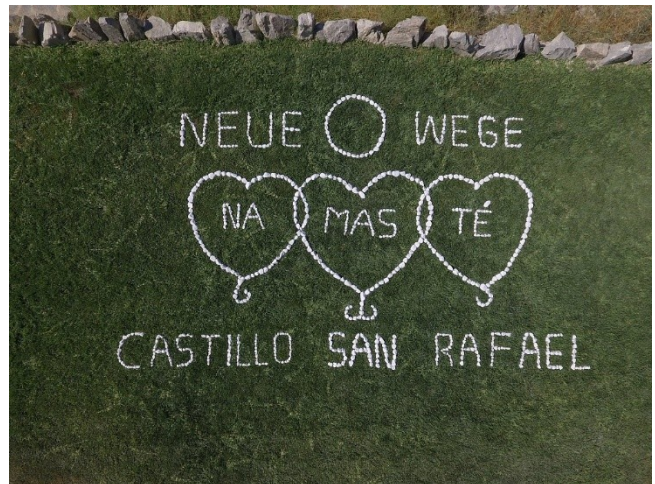 NEUE WEGE
NA MAS TÉ
CASTILLO SAN RAFAEL